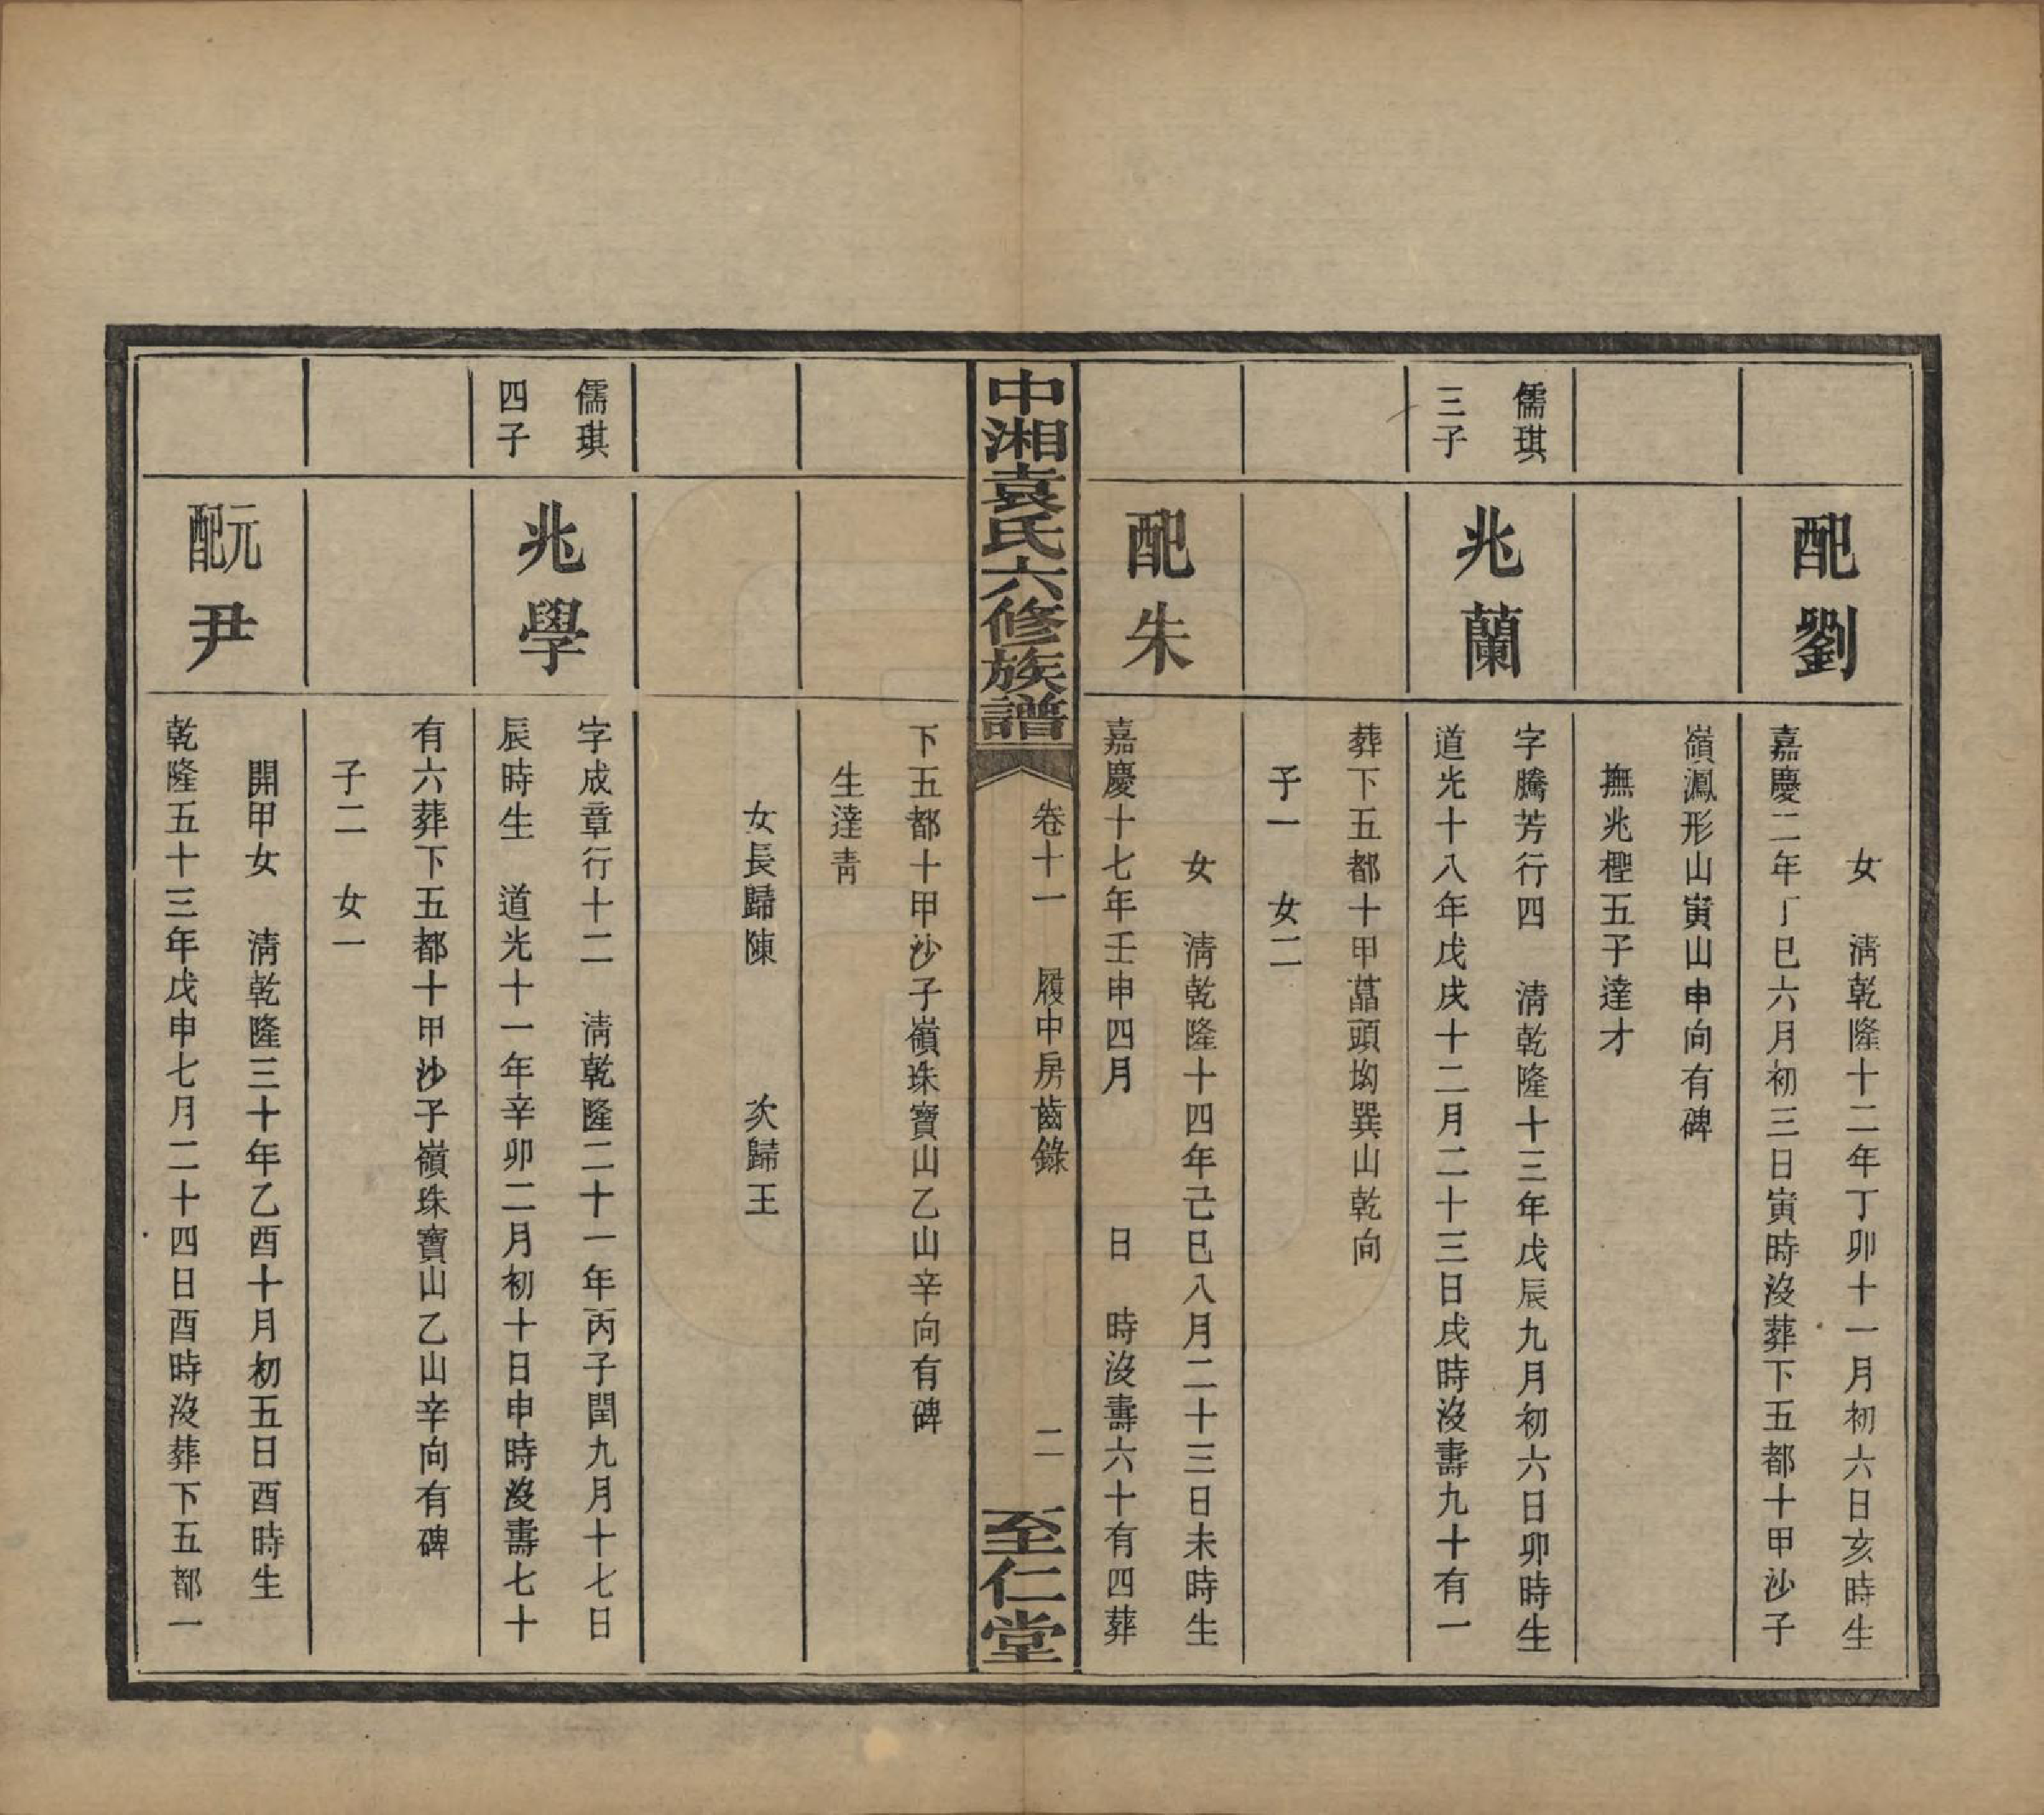 配劉
女　淸乾隆十二年丁卯十一月初六日亥時生
嘉慶二年丁巳六月初三日寅時沒葬下五都十甲沙子
嶺鳳形山寅山申向有碑
撫兆檉五子達才
儒琪
三子
兆蘭
字騰芳行四　淸乾隆十三年戊辰九月初六日卯時生
道光十八年戊戌十二月二十三日戌時沒壽九十有一
葬下五都十甲藠頭坳巽山乾向
子一　女二
配朱
女　淸乾隆十四年己巳八月二十三日未時生
嘉慶十七年壬申四月　　　日　時沒壽六十有四葬
中湘袁氏六修族譜
卷十一　履中房齒錄　　　二
至仁堂
下五都十甲沙子嶺珠寶山乙山辛向有碑
生達靑
女長歸陳　　　次歸王
儒琪
四子
兆學
字成章行十二　淸乾隆二十一年丙子閏九月十七日
辰時生　道光十一年辛卯二月初十日申時沒壽七十
有六葬下五都十甲沙子嶺珠寶山乙山辛向有碑
子二　女一
元配尹
開甲女　淸乾隆三十年乙酉十月初五日酉時生
乾隆五十三年戊申七月二十四日酉時沒葬下五都一